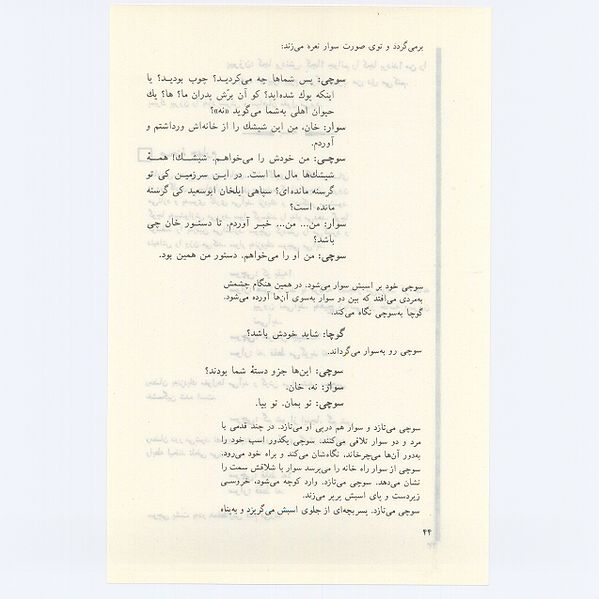 برمی‌گردد و توی صورت سوار نعره می‌زند:
سوچی: پس شماها چه می‌کردید؟ چوب بودید؟ یا
اینکه پوك شده‌اید؟ کو آن برّش پدران ما؟ ها؟ یك
حیوان اهلی به‌شما می‌گوید «نه»؟
سوار: خان، من این شیشك را از خانه‌اش ورداشتم و
آوردم.
سوچی: من خودش را می‌خواهم. شیشك! همهٔ
شیشك‌ها مال ما است. در این سرزمین کی تو
گرسنه مانده‌ای؟ سپاهی ایلخان ابوسعید کی گرسنه
مانده است؟
سوار: من... من... خبر آوردم. تا دستور خان چی
باشد؟
سوچی: من او را می‌خواهم. دستور من همین بود.
سوچی خود بر اسبش سوار می‌شود. در همین هنگام چشمش
به‌مردی می‌افتد که بین دو سوار به‌سوی آن‌ها آورده می‌شود.
گوچا به‌سوچی نگاه می‌کند.
گوچا: شاید خودش باشد؟
سوچی رو به‌سوار می‌گرداند.
سوچی: این‌ها جزو دستهٔ شما بودند؟
سوار: نه، خان.
سوچی: تو بمان. تو بیا.
سوچی می‌تازد و سوار هم درپی او می‌تازد. در چند قدمی با
مرد و دو سوار تلاقی می‌کنند. سوچی یکدور اسب خود را
به‌دور آن‌ها می‌چرخاند، نگاه‌شان می‌کند و براه خود می‌رود.
سوچی از سوار راه خانه را می‌پرسد سوار با شلاقش سمت را
نشان می‌دهد. سوچی می‌تازد. وارد کوچه می‌شود، خروسی
زیردست و پای اسبش پرپر می‌زند.
سوچی می‌تازد. پسربچه‌ای از جلوی اسبش می‌گریزد و به‌پناه
۴۴